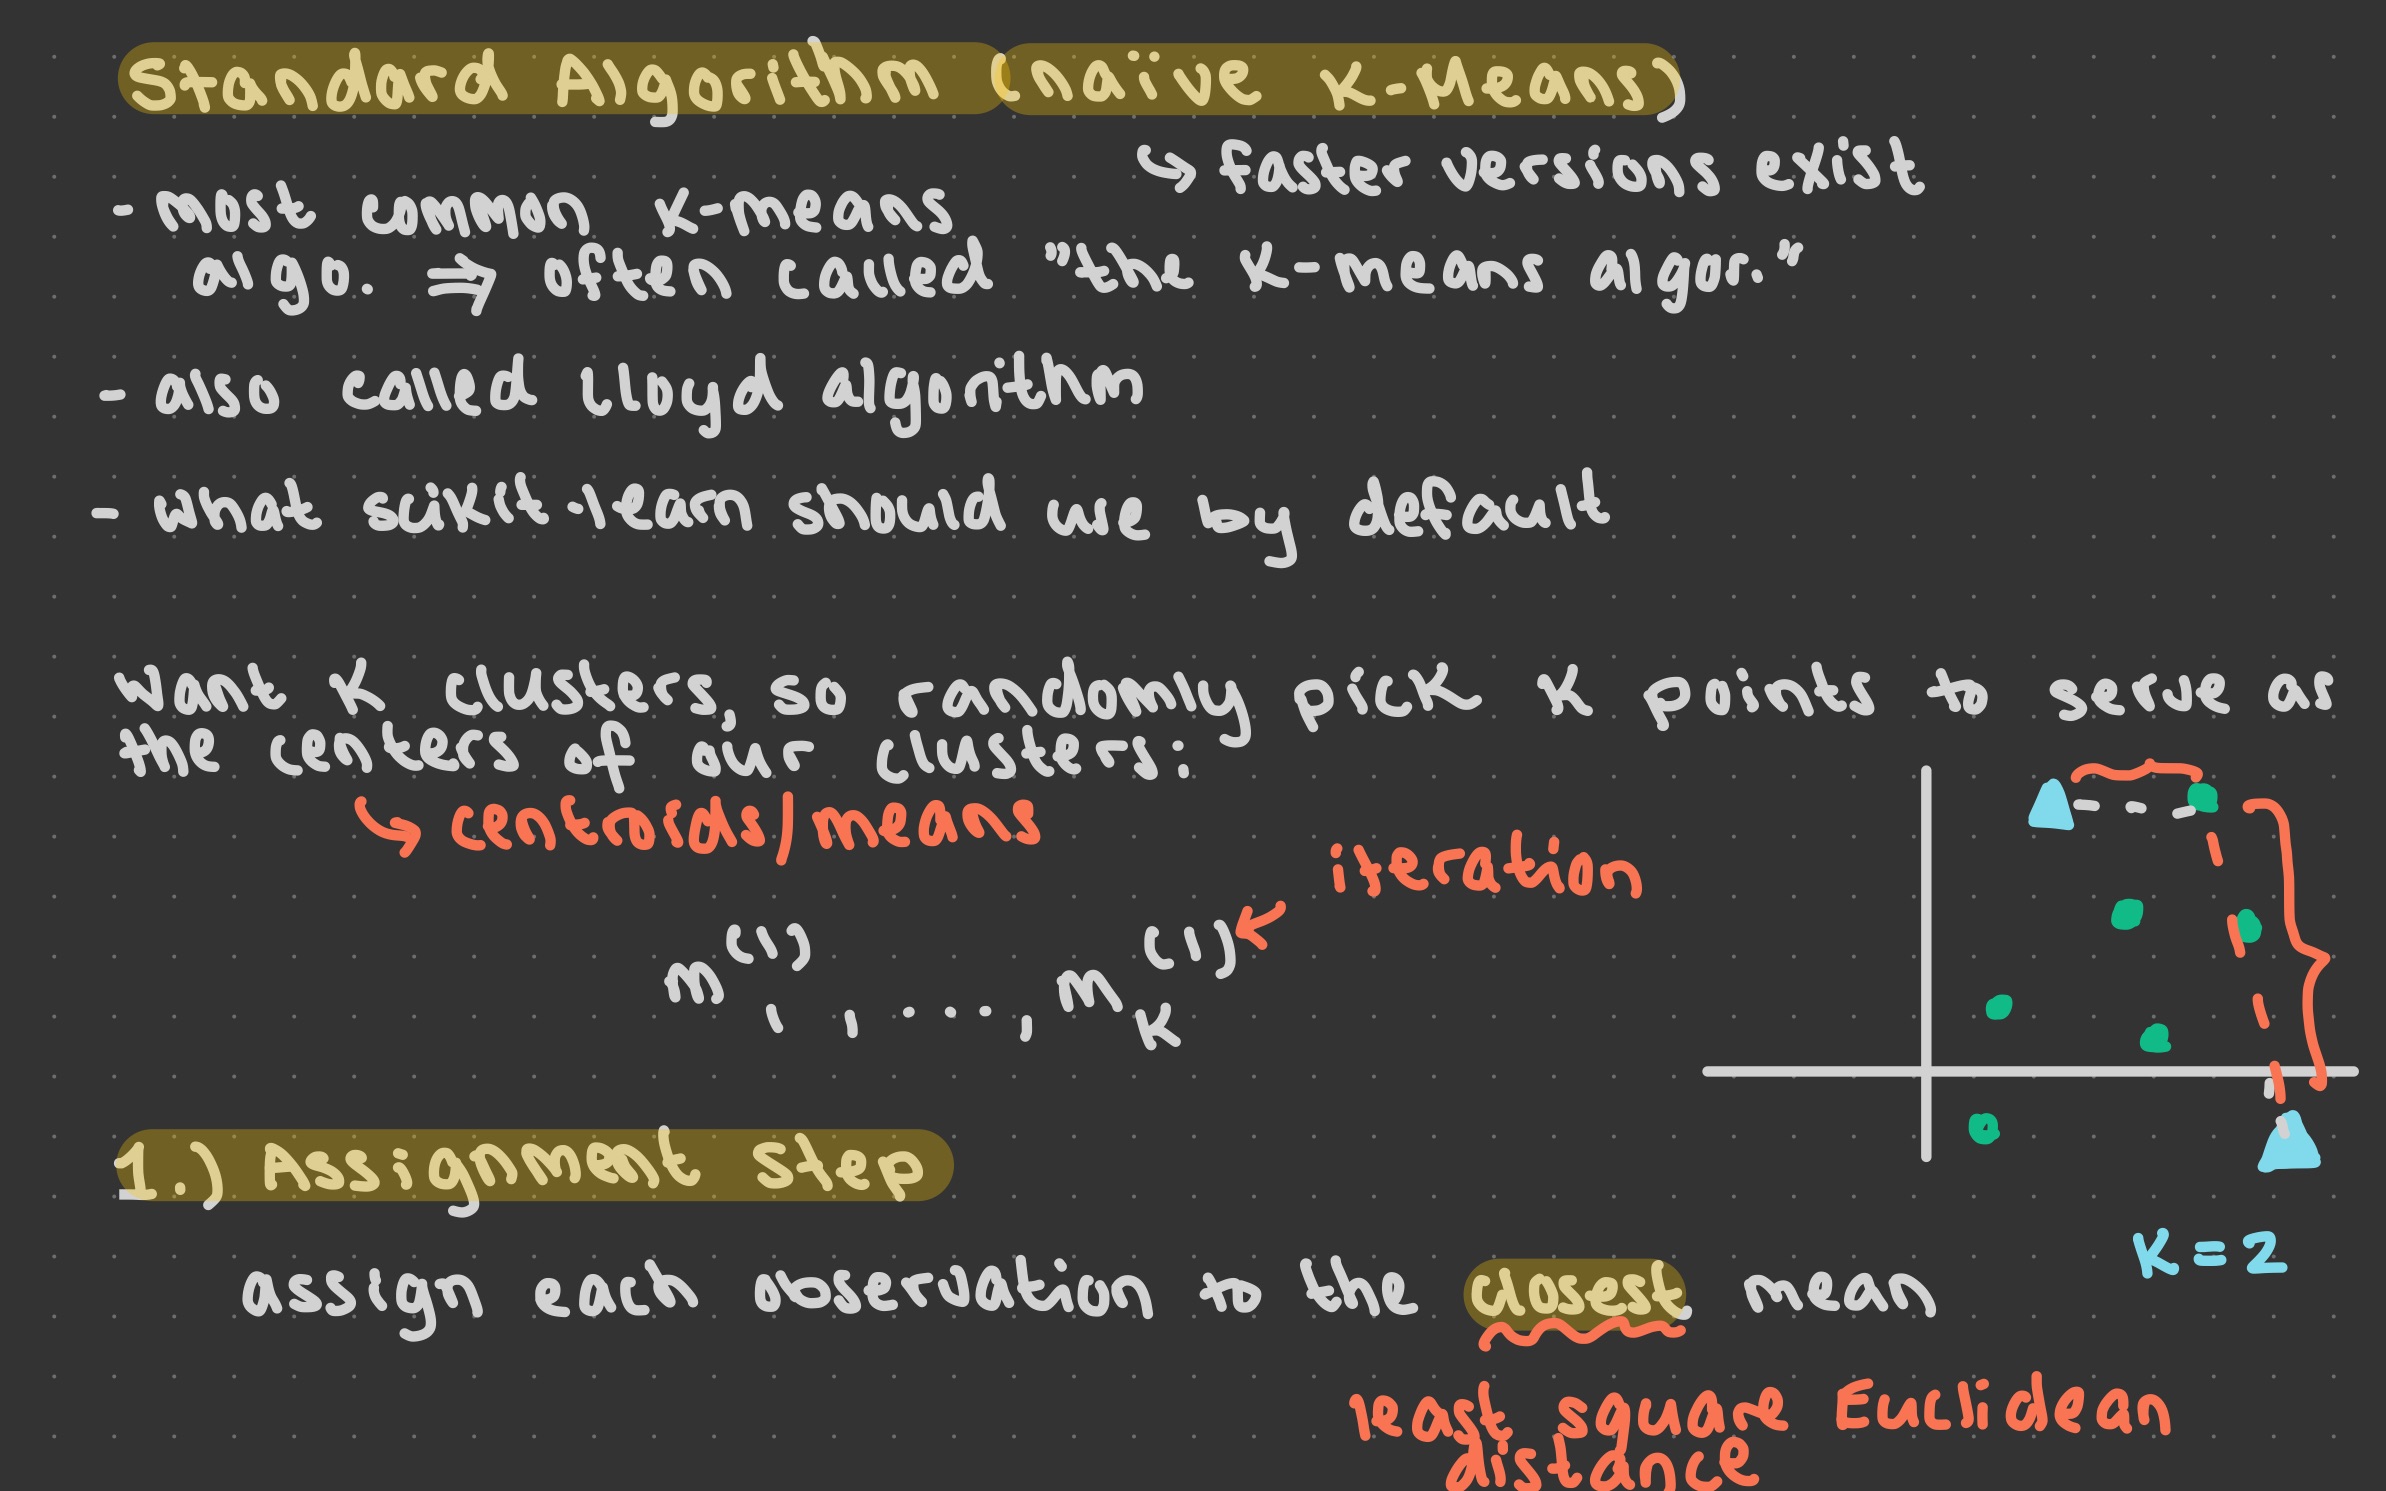 Standard Algorithm (naïve K-Means)
↳ faster versions exist
- most common K-means
algo. ⇒ often called "the K-means algor."
- also called Lloyd algorithm
- what scikit-learn should use by default
Want K clusters, so randomly pick K points to serve as
the centers of our clusters:
↳ centroids/means
iteration
m₁⁽¹⁾, ...., m_K⁽¹⁾
1.) Assignment step
K = 2
assign each observation to the closest mean
least square Euclidean
distance